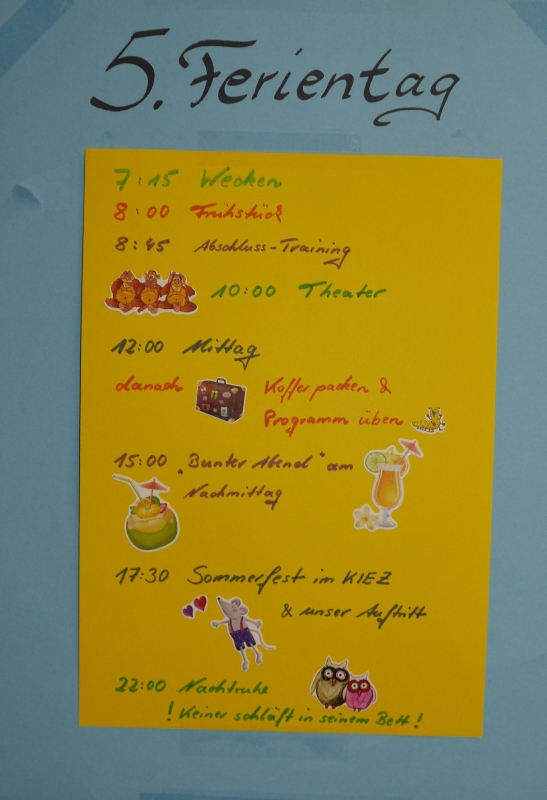 5. Ferientag
7:15 Wecken
8:00 Frühstück
8:45 Abschluss-Training
10:00 Theater
12:00 Mittag
danach Koffer packen &
Programm üben
15:00 „Bunter Abend" am
Nachmittag
17:30 Sommerfest im KIEZ
& unser Auftritt
22:00 Nachtruhe
! Keiner schläft in seinem Bett !